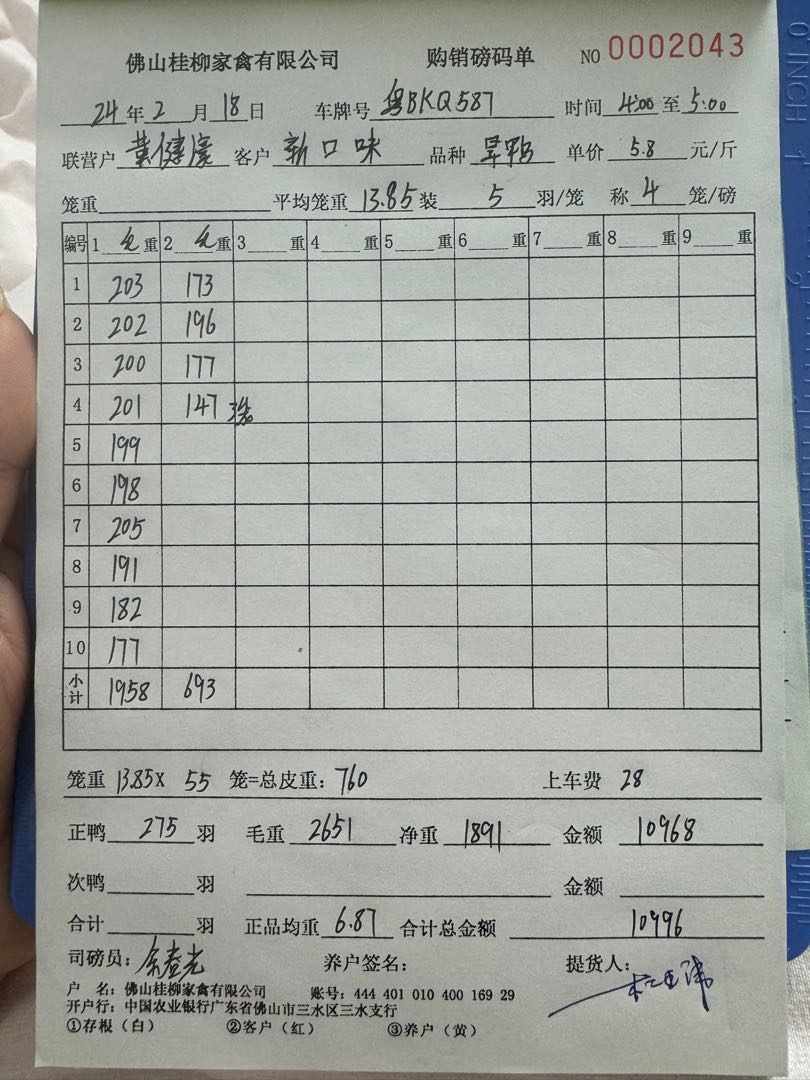 佛山桂柳家禽有限公司 购销磅码单 NO 0002043
24年2月18日 车牌号 粤BKQ587 时间 4:00 至 5:00
联营户 黄健濠 客户 新口味 品种 旱鸭 单价 5.8 元/斤
笼重 平均笼重 13.85 装 5 羽/笼 称 4 笼/磅
编号 1 毛 重 2 毛 重 3 重 4 重 5 重 6 重 7 重 8 重 9 重
1 203 173
2 202 196
3 200 177
4 201 147 3笼
5 199
6 198
7 205
8 191
9 182
10 177
小计 1958 693
笼重 13.85X 55 笼=总皮重: 760 上车费 28
正鸭 275 羽 毛重 2651 净重 1891 金额 10968
次鸭 羽 金额
合计 羽 正品均重 6.87 合计总金额 10996
司磅员: 养户签名: 提货人:
户 名: 佛山桂柳家禽有限公司 账号: 444 401 010 400 169 29
开户行: 中国农业银行广东省佛山市三水区三水支行
①存根(白) ②客户(红) ③养户(黄)
0 INCH 1
2